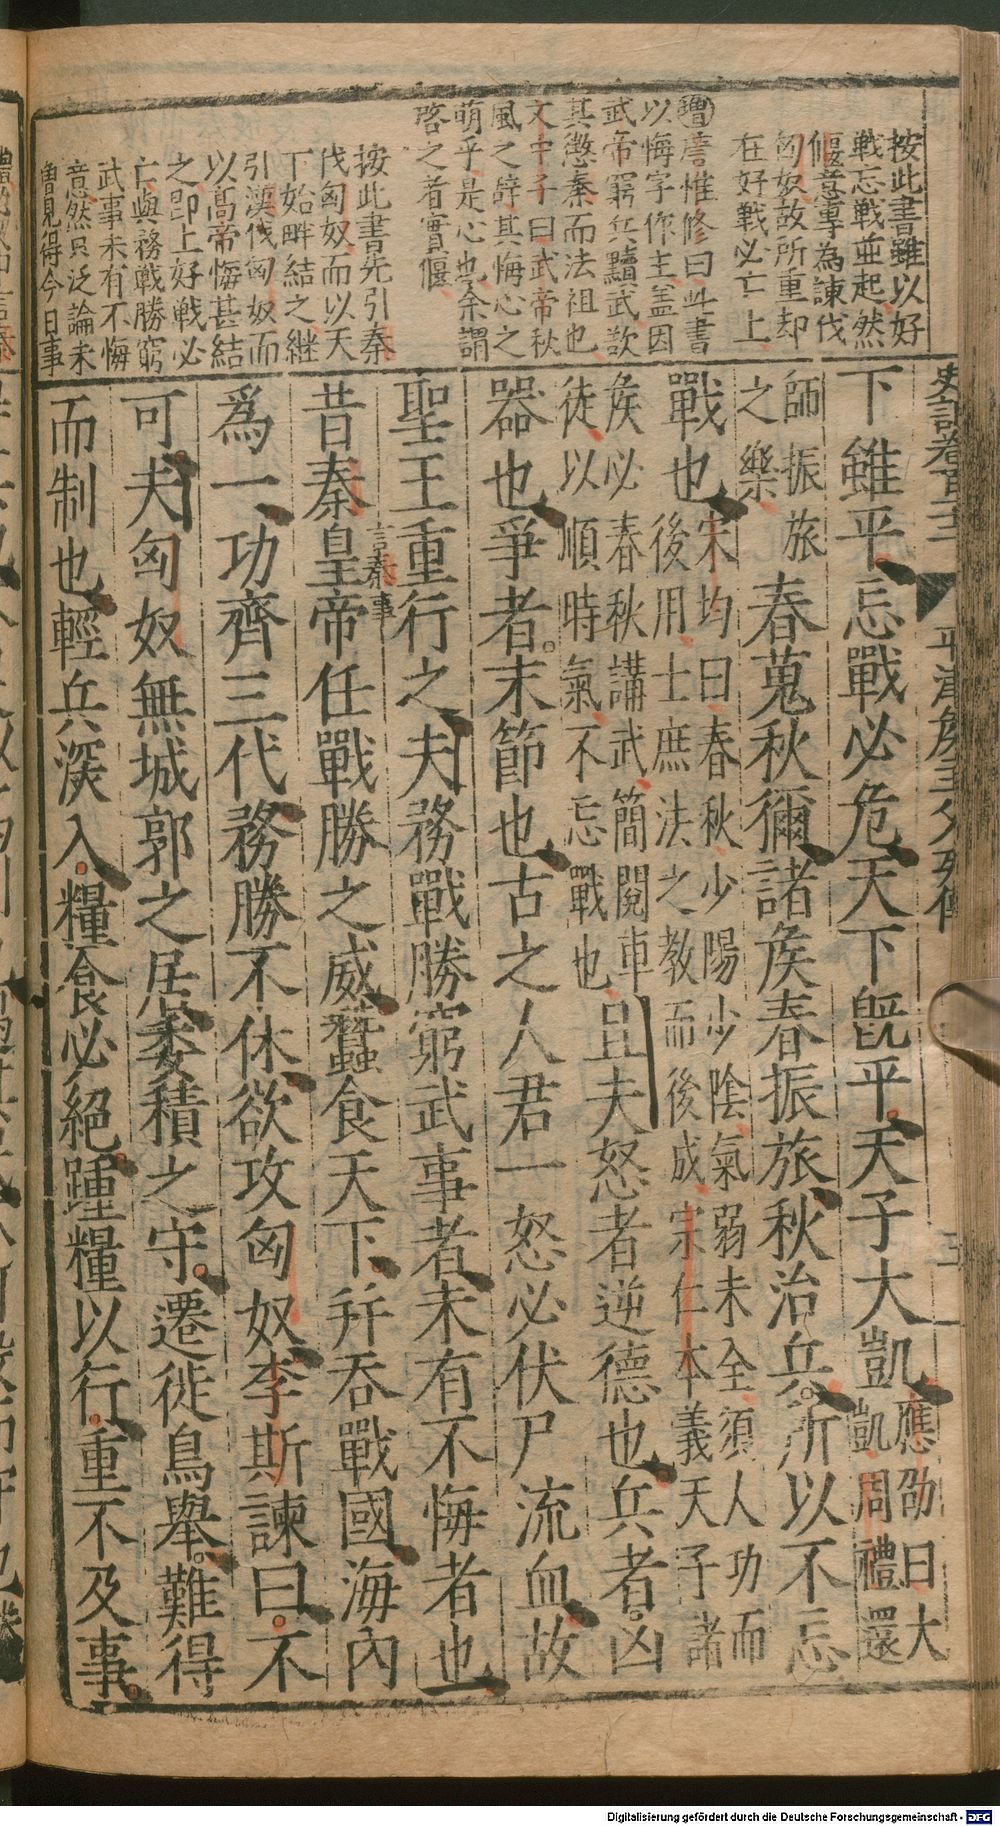 按此書雖以好
戰忘戰並起然
偃意專為諫伐
匈奴故所重却
在好戰必亡上
增唐惟修曰此書
以悔字作主蓋因
武帝窮兵黷武欲
其懲秦而法祖也
文中子曰武帝秋
風之辭其悔心之
萌乎是心也余謂
啓之者實偃
按此書先引秦
伐匈奴而以天
下始畔結之継
引漢伐匈奴而
以高帝悔甚結
之即上好戰必
亡與務戰勝窮
武事未有不悔
意然只泛論未
曾見得今日事
史記卷百十二
平津矦主父列傳
三
下雖平忘戰必危天下旣平天子大凱應劭曰大
凱周禮還
師振旅
之樂春蒐秋獮諸矦春振旅秋治兵所以不忘
戰也宋均曰春秋少陽少陰氣弱未全須人功而
後用士庶法之教而後成宗仁本義天子諸
矦必春秋講武簡閱車
徒以順時氣不忘戰也且夫怒者逆德也兵者凶
器也爭者末節也古之人君一怒必伏尸流血故
聖王重行之夫務戰勝窮武事者未有不悔者也
昔秦皇帝任戰勝之威蠶食天下并吞戰國海內
言秦事
爲一功齊三代務勝不休欲攻匈奴李斯諫曰不
可夫匈奴無城郭之居委積之守遷徙鳥舉難得
而制也輕兵深入糧食必絕踵糧以行重不及事
Digitalisierung gefördert durch die Deutsche Forschungsgemeinschaft - DFG